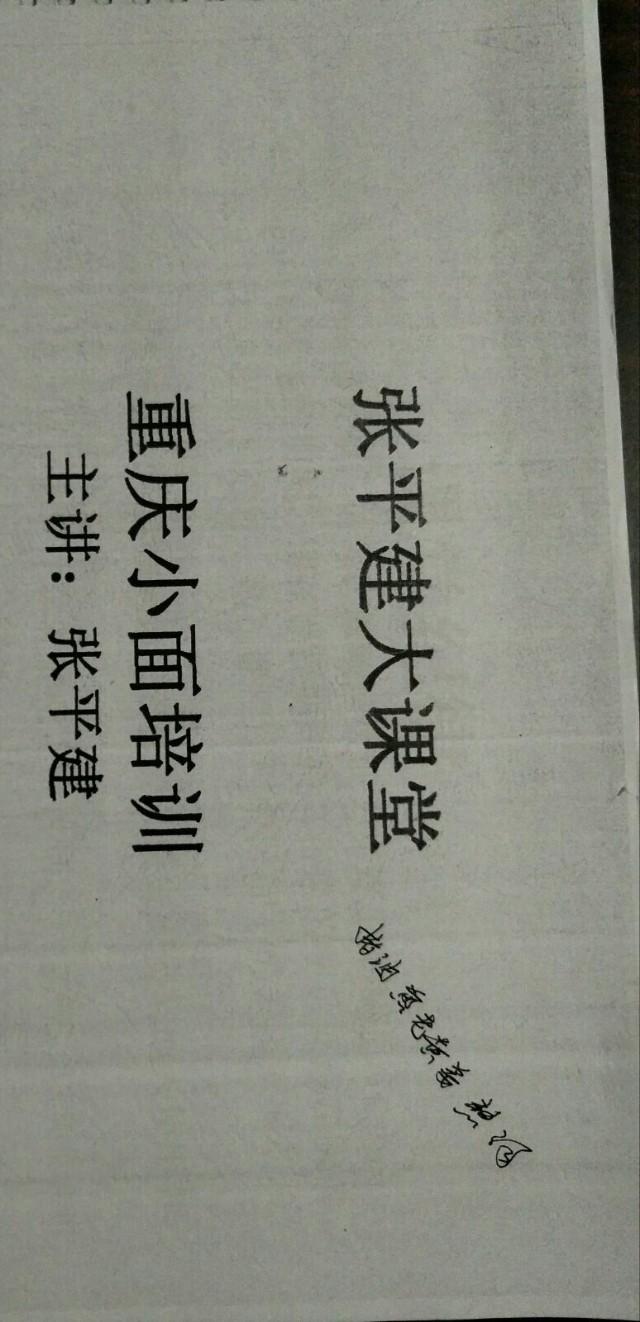 张平建大课堂
猪油
重庆小面培训
主讲：张平建